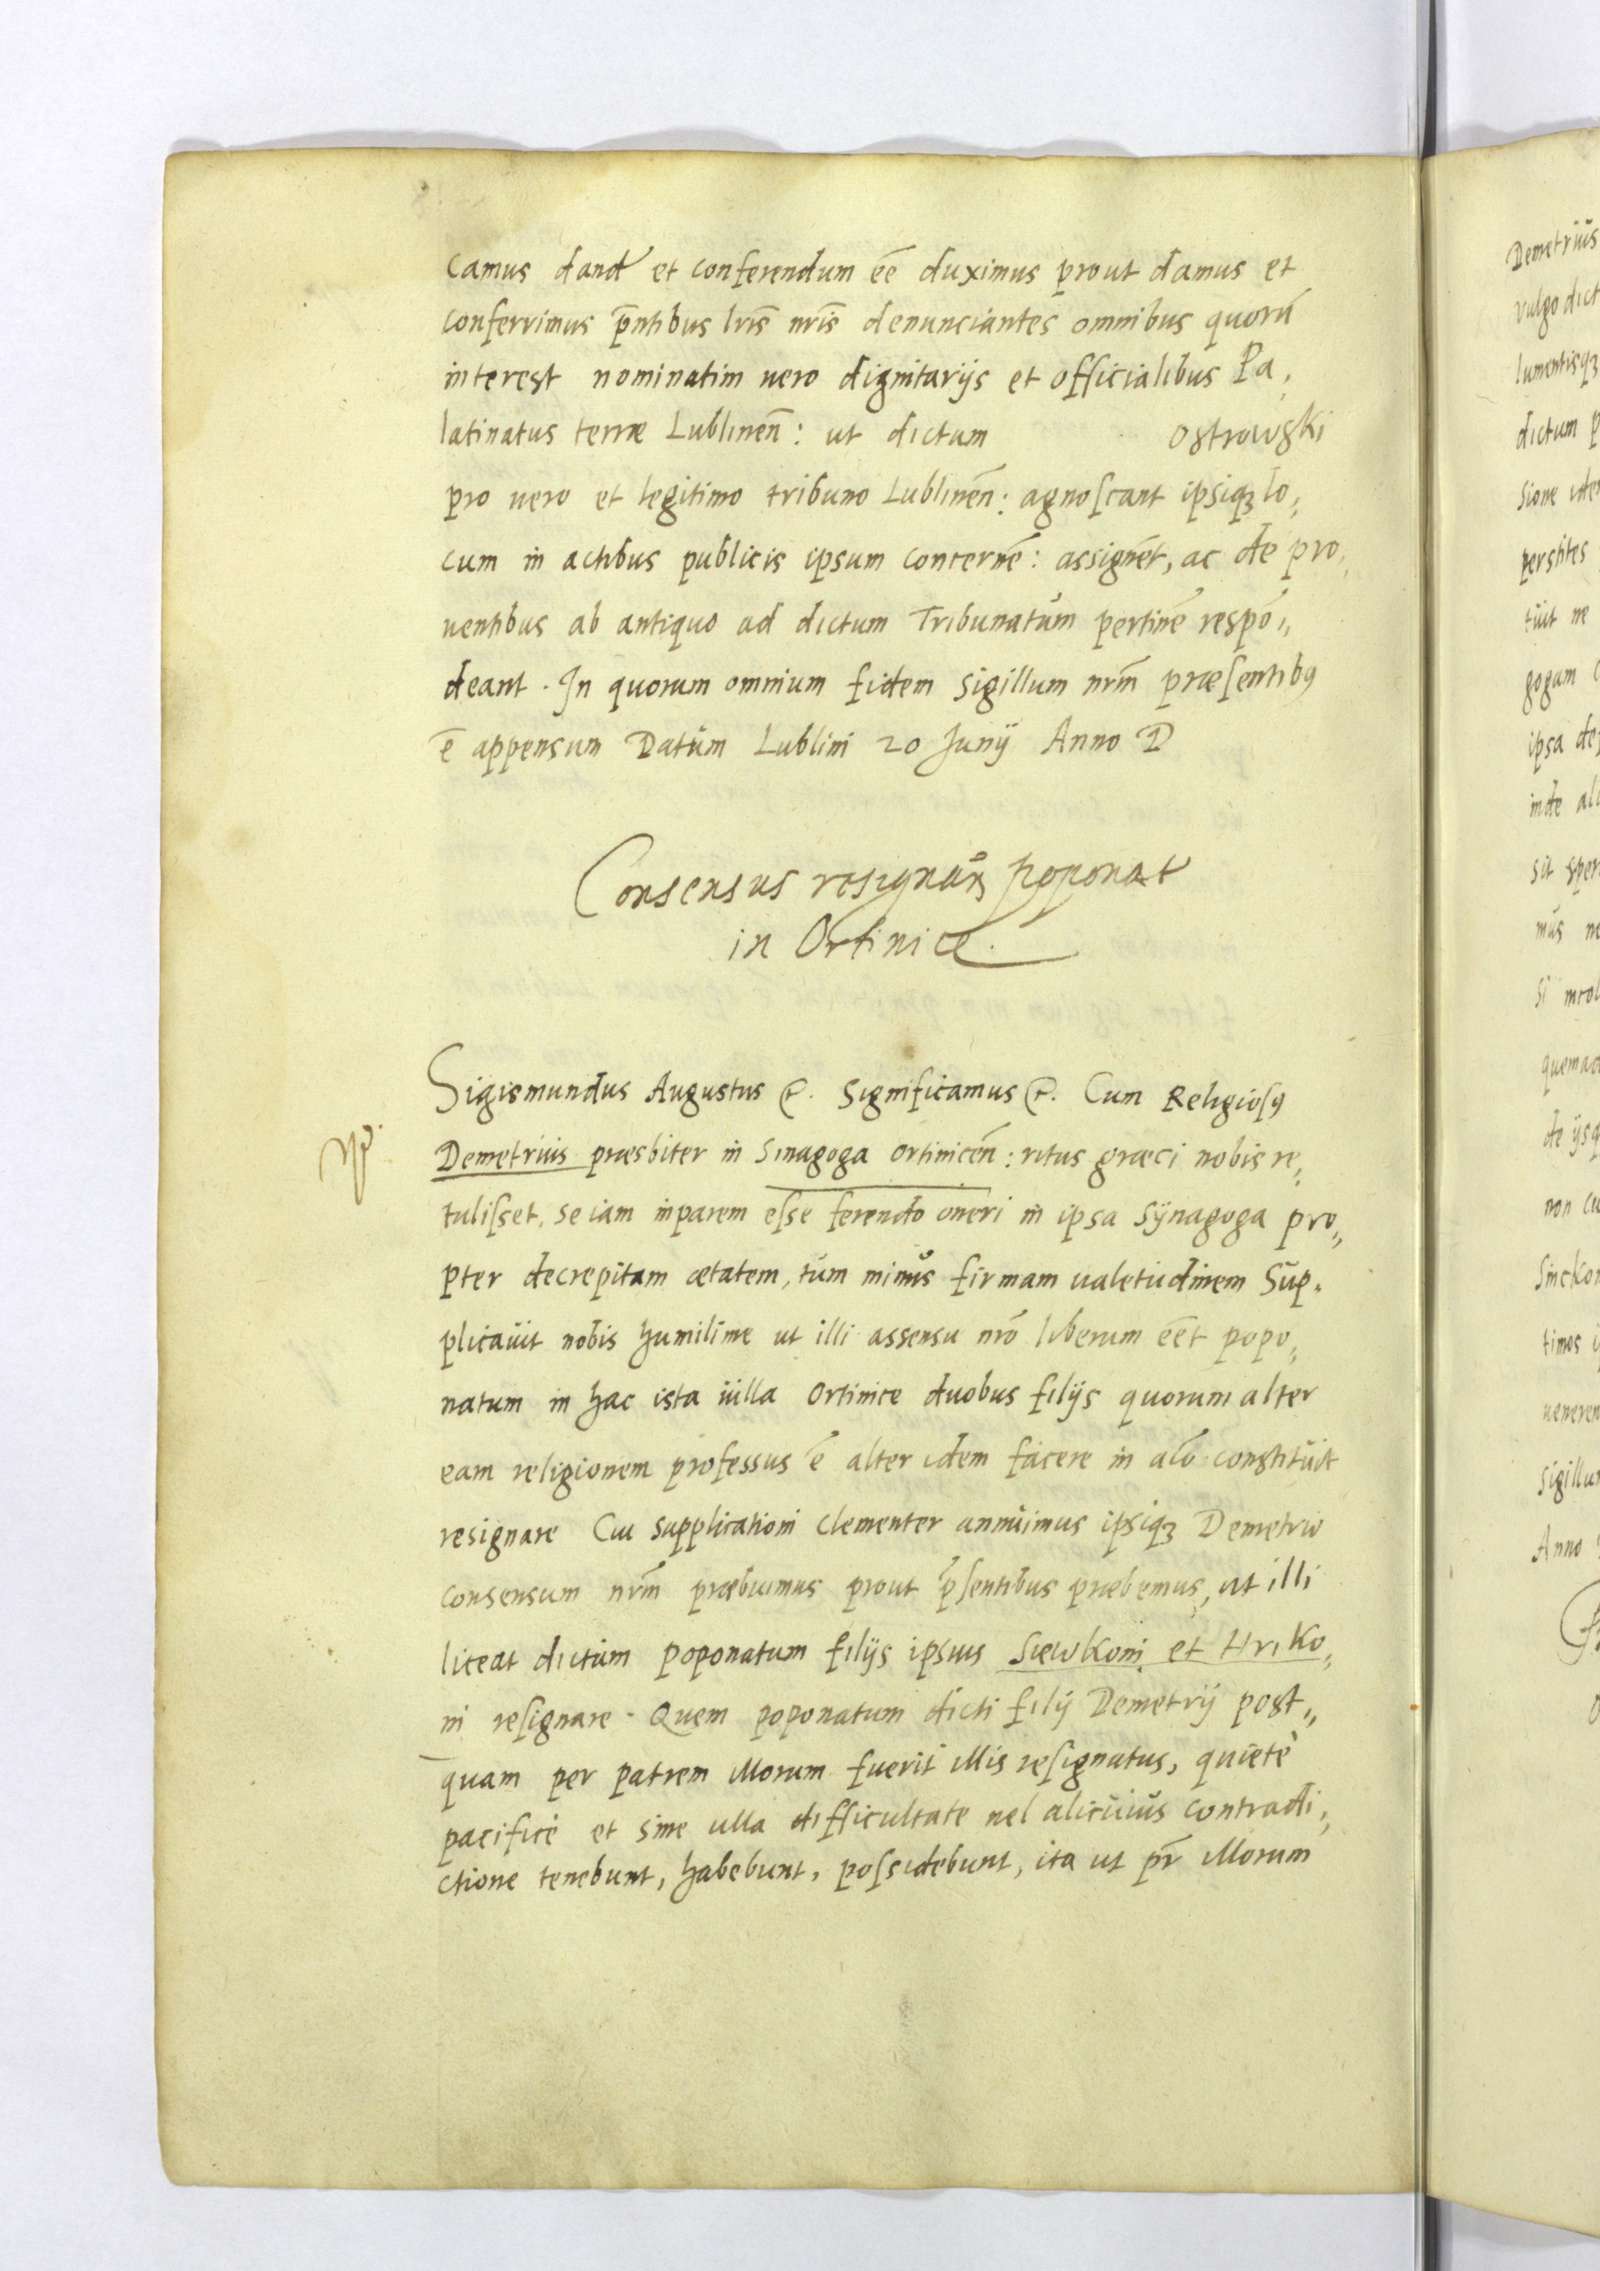 Camus dand et conferendum ēe duximus prout damus et
conferrimus p̄ntibus lr̄is nr̄is denunciantes omnibus quorū
interest nominatim vero dignitarijs et officialibus Pa,
latinatus terræ Lublinen̄: ut dictum Ostrowski
pro vero et legitimo tribuno Lublinen̄: agnoscant ipsiqȝ lo,,
cum in actibus publicis ipsum concernē: assignēt, ac de pro,
uentibus ab antiquo ad dictum Tribunatum pertinē respō,,
deant. In quorum omnium fidem Sigillum nr̄m præsentibꝰ
ē appensum Datum Lublini 20 Junij Anno D
Consensus resignan̄ poponat
in Ortinice.
Sigismundus Augustus &. Significamus &. Cum Religiosꝰ
Demetrius præsbiter in Sinagoga Ortinicēn: ritus græci nobis re,
tulisset, se iam inparem esse ferendo oneri in ipsa Sÿnagoga pro,,
pter decrepitam ætatem, tum minus firmam ualetudinem Sup,
plicauit nobis humilime ut illi assensu nr̄o liberum ēet popo,
natum in hac ista uilla Ortinice duobus filijs quorum alter
eam religionem professus ē alter idem facere in aīo constituit
resignare Cui supplicationi clementer annuimus ipsiqȝ Demetrio
consensum nr̄m præbuimus prout p̄sentibus præbemus, ut illi
liceat dictum poponatum filijs ipsius Siewkoni et Hriko,
ni resignare. Quem poponatum dicti filij Demetrij post,,
quam per patrem illorum fuerit illis resignatus, quietè
pacificè et sine ulla difficultate uel alicuius contradi,
ctione tenebunt, habebunt, possidebunt, ita ut pr̄ illorum
Demetrius
vulgo dict
lumentisqȝ
dictum p
sione
tuit ne
gogam
ipsa
inde
sit
mus
Si
de ijsq
non cu
timos
Sigillu
Anno